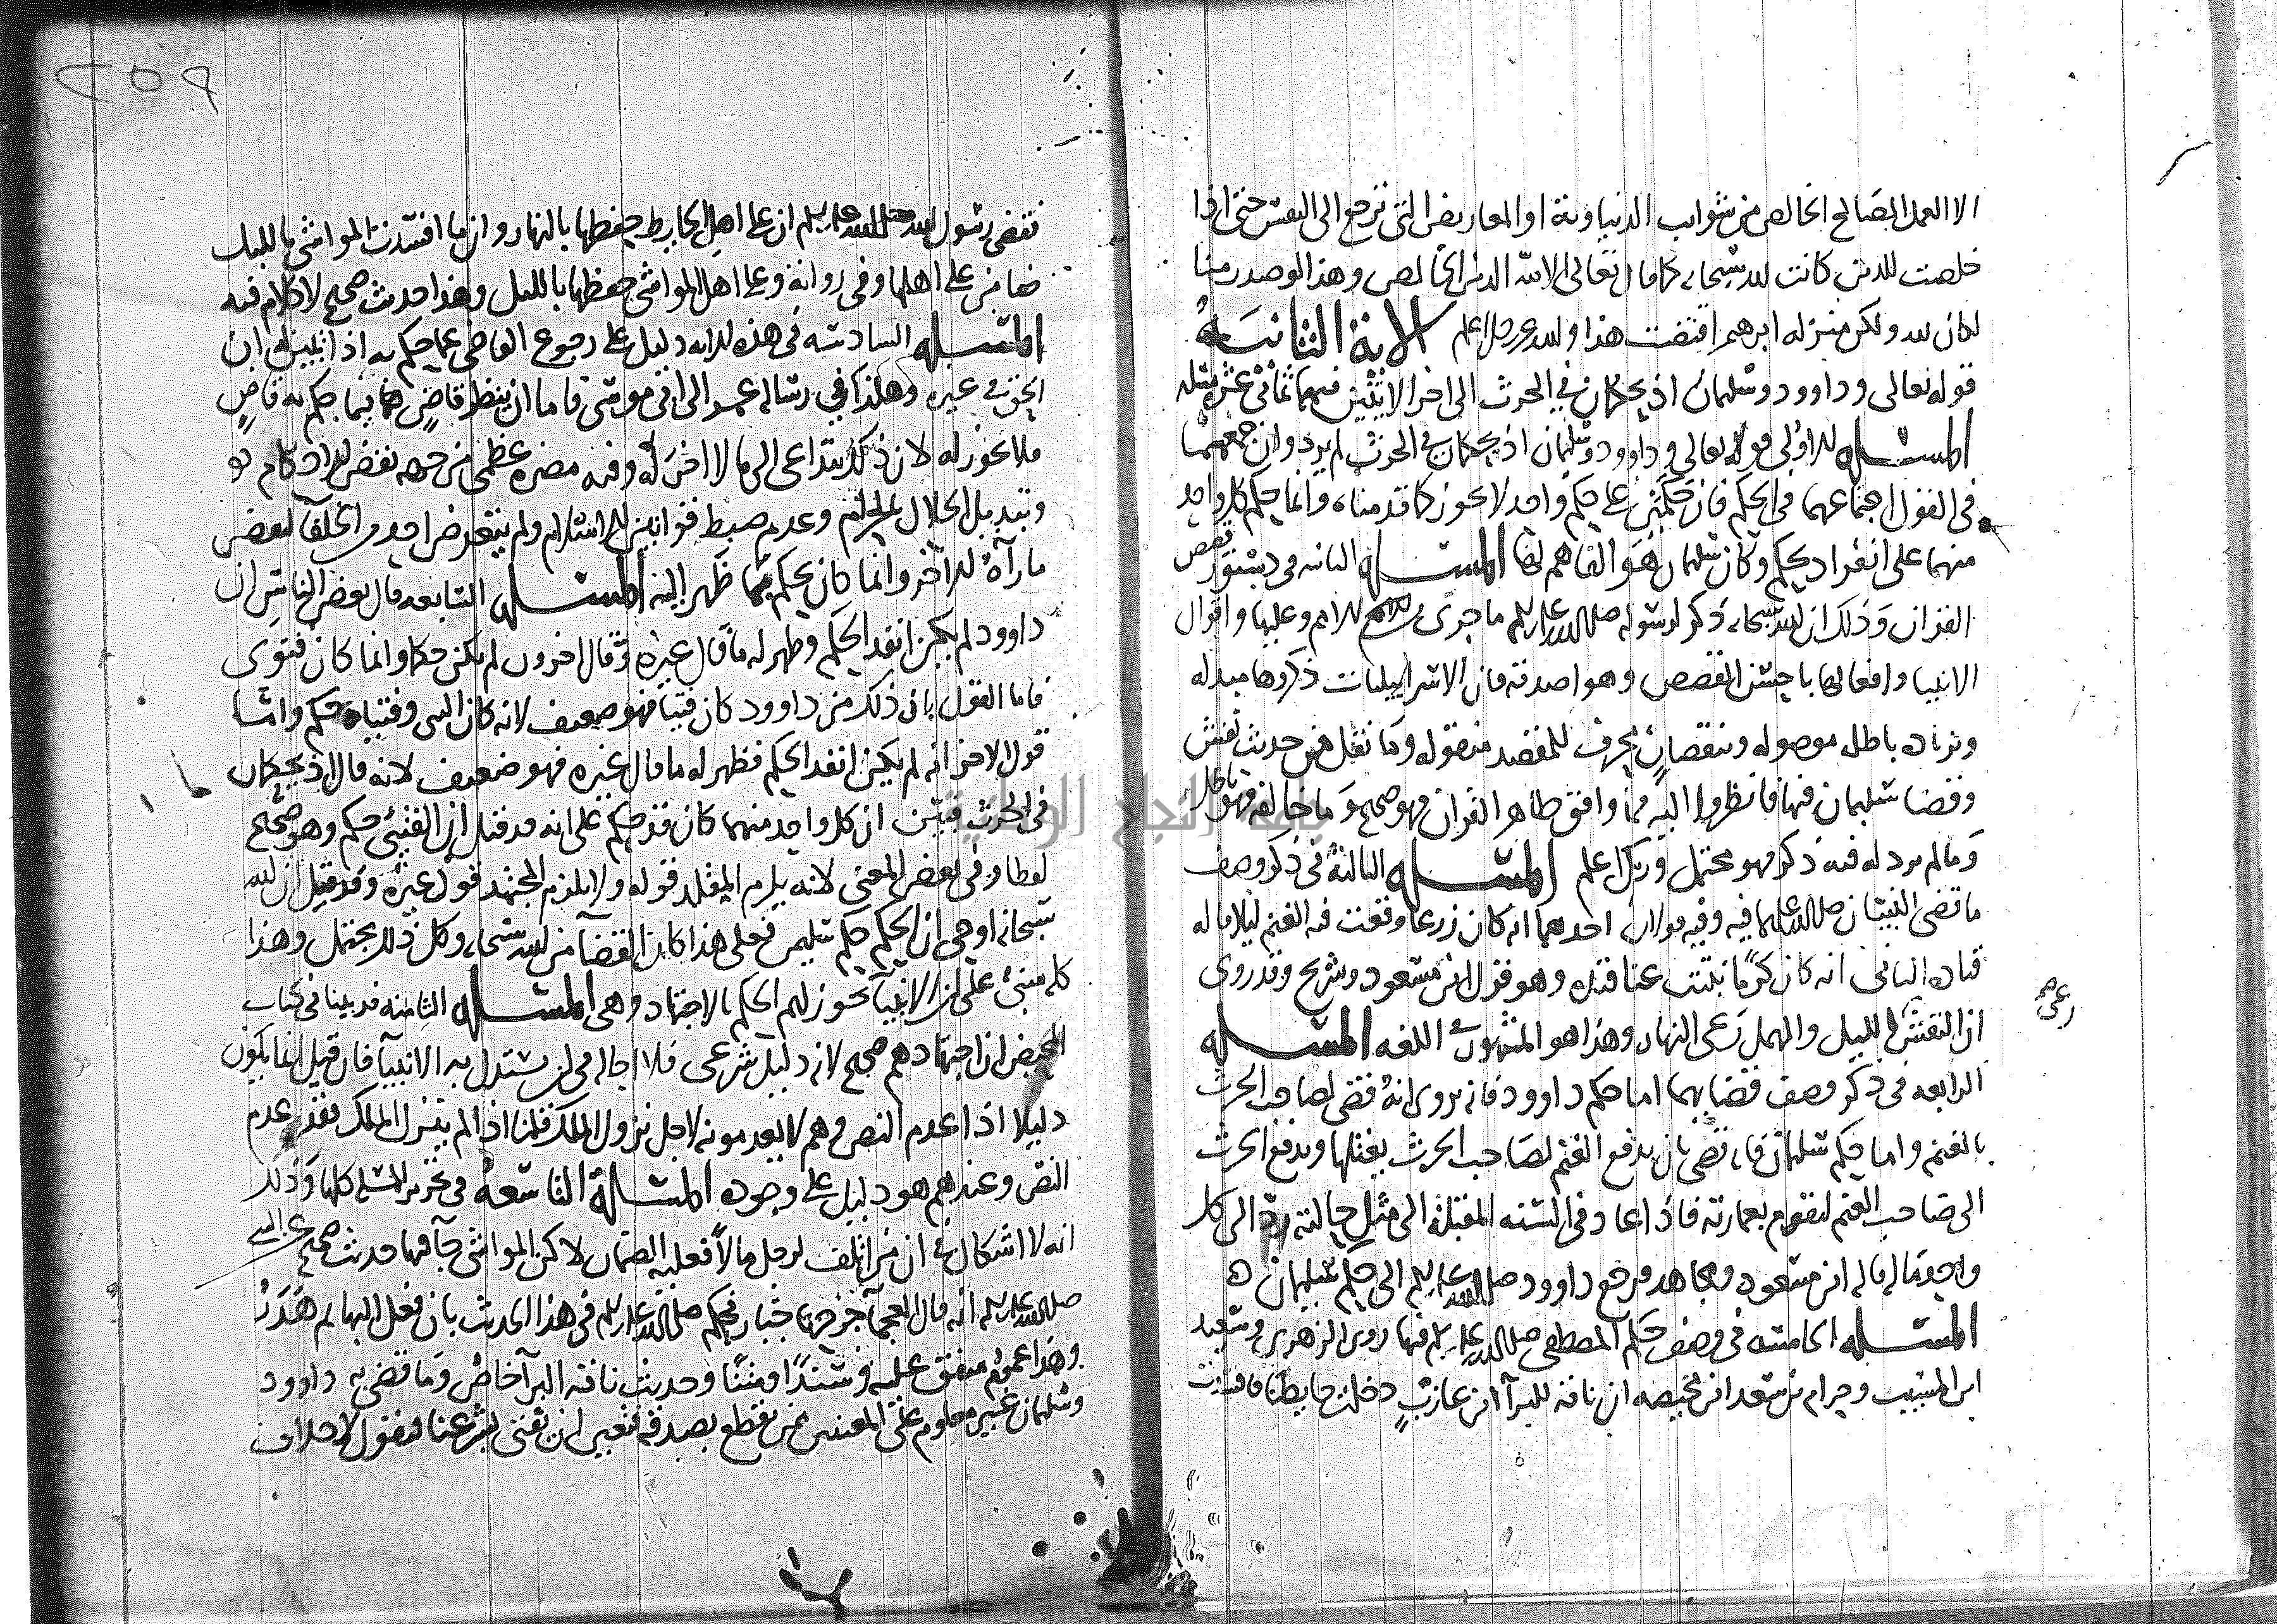 الا العمل الصالح الخالص من شوايب الدنياوية او المعاريض التي ترجع الى النفس حتى اذا
خلصت للدين كانت لله سبحانه كما قال تعالى الا لله الدين الخالص وهذا لو صدر منا
لكان لله ولكن منزلة ابرهيم اقتضت هذا والله عز وجل اعلم الاية الثانية
قوله تعالى وداوود وسليمان اذ يحكمان في الحرث الى اخر الايتين فيهما ثماني عشرة مسلة
المسلة الاولى قوله تعالى وداوود وسليمان اذ يحكمان في الحرث لم يرد وان جمعهما
في القول اجتماعهما في الحكم فان حكمين على حكم واحد لا يجوز كما قدمناه وانما حكم كل واحد
منهما على انفراد بحكم وكان سليمان هو الفاهم لها المسلة الثانية في دستور قصص
القران وذلك ان الله سبحانه ذكر لرسوله صلى الله عليه وسلم ما جرى من الامم وعليها واقوال
الانبيا وافعالها باحسن القصص وهو اصدقه فان الاسراييليات ذكروها مبدلة
وبزيادة باطلة موصولة وبنقصان يحرف للمقصد منقولة وما نقل من حديث نفش
وقضا سليمان فيها فانظروا اليه فما وافق ظاهر القران فهو صحيح وما خالفه فهو باطل
وما لم يرد له فيه ذكر فهو محتمل وربك اعلم المسلة الثالثة في ذكر وصف
ما قضى النبيان صلى الله عليهما فيه وفيه قولان احدهما انه كان زرعا وقعت فيه الغنم ليلا قاله
قتادة الثاني انه كان كرما نبتت عناقيده وهو قول ابن مسعود وشريح وقد روي
ان النفش بالليل والهمل رعي النهار وهذا هو المشهور في اللغة المسلة
رعي صح
الرابعة في ذكر وصف قضايهما اما حكم داوود فانه يروى انه قضى لصاحب الحرث
بالغنم واما حكم سليمان فانه قضى بان يدفع الغنم لصاحب الحرث يغتلها ويدفع الحرث
الى صاحب الغنم ليقوم بعمارته فاذا عاد في السنة المقبلة الى مثل حالته رد الى كل
واحد ماله قاله ابن مسعود ومجاهد فرجع داوود صلى الله عليه وسلم الى حكم سليمان ه
المسلة الخامسة في وصف حكم المصطفى صلى الله عليه وسلم فيها روى الزهري وسعيد
ابن المسيب وحرام بن سعد ابن محيصة ان ناقة للبرآ ابن عازب دخلت حايطا فافسدت
٢٥٩
فقضى رسول الله صلى الله عليه وسلم ان على اهل الحايط حفظها بالنهار وان ما افسدت المواشي بالليل
ضامن على اهلها وفي رواية وعلى اهل المواشي حفظها بالليل وهذا حديث صحيح لا كلام فيه
المسلة السادسة في هذه الاية دليل على رجوع القاضي عما حكم به اذا تبين له ان
الحق في غيره وهكذا في رسالة عمر الى ابي موسى فاما ان ينظر قاض فيما حكم به قاض
فلا يجوز له لان ذلك يتداعى الى ما لا اخر له وفيه مضرة عظمى من جهة نقض الاحكام
وتبديل الحلال بالحرام وعدم ضبط قوانين الاسلام ولم يتعرض احد من الخلفا لنقض
ما رآه الآخر وانما كان يحكم بما ظهر اليه المسلة السابعة قال بعض الناس ان
داوود لم يكن انفذ الحكم وظهر له ما قال غيره وقال اخرون لم يكن حكما وانما كان فتوى
فاما القول بان ذلك من داوود كان فتيا فهو ضعيف لانه كان النبي وفتياه حكم واما
قول الاخر انه لم يكن انفذ الحكم فظهر له ما قال غيره فهو ضعيف لانه قال اذ يحكمان
في الحرث فبين ان كل واحد منهما كان قد حكم على انه قد قيل ان الفتيى حكم وهو صحيح
لفظا وفي بعض المعنى لانه يلزم المقلد قوله ولا يلزم المجتهد قول غيره وقد قيل ان الله
سبحانه اوحى ان الحكم حكم سليمن فعلى هذا كان القضآ من الله سبحانه وكل ذلك محتمل وهذا
كله مبني على ان الانبيآ يجوز لهم الحكم بالاجتهاد وهي المسلة الثامنة قد بينا في كتاب
التمحيص ان اجتهادهم صحيح لانه دليل شرعي فلا احالة في ان يستدل به الانبيآ فان قيل انما يكون
دليلا اذا عدم النص وهم لا يعدمونه لاجل نزول الملك قلنا اذا لم ينزل الملك فقد عدم
النص وعندهم هو دليل على وجوده المسلة التاسعة في تحرير المسلة كلها وذلك
انه لا اشكال في ان من اتلف لرجل مالا فعليه الضمان لاكن المواشي جآ فيها حديث صحيح عن النبي
صلى الله عليه وسلم انه قال العجمآ جرحها جبار فحكم صلى الله عليه وسلم في هذا الحديث بان فعل البهايم هدر
وهذا عموم متفق عليه سندا ومتنا وحديث ناقة البرآ خاص وما قضى به داوود
وسليمان غير معلوم على التعيين ممن يقطع بصدقه فتعين ان نعتني بشرعنا فنقول لا خلاف